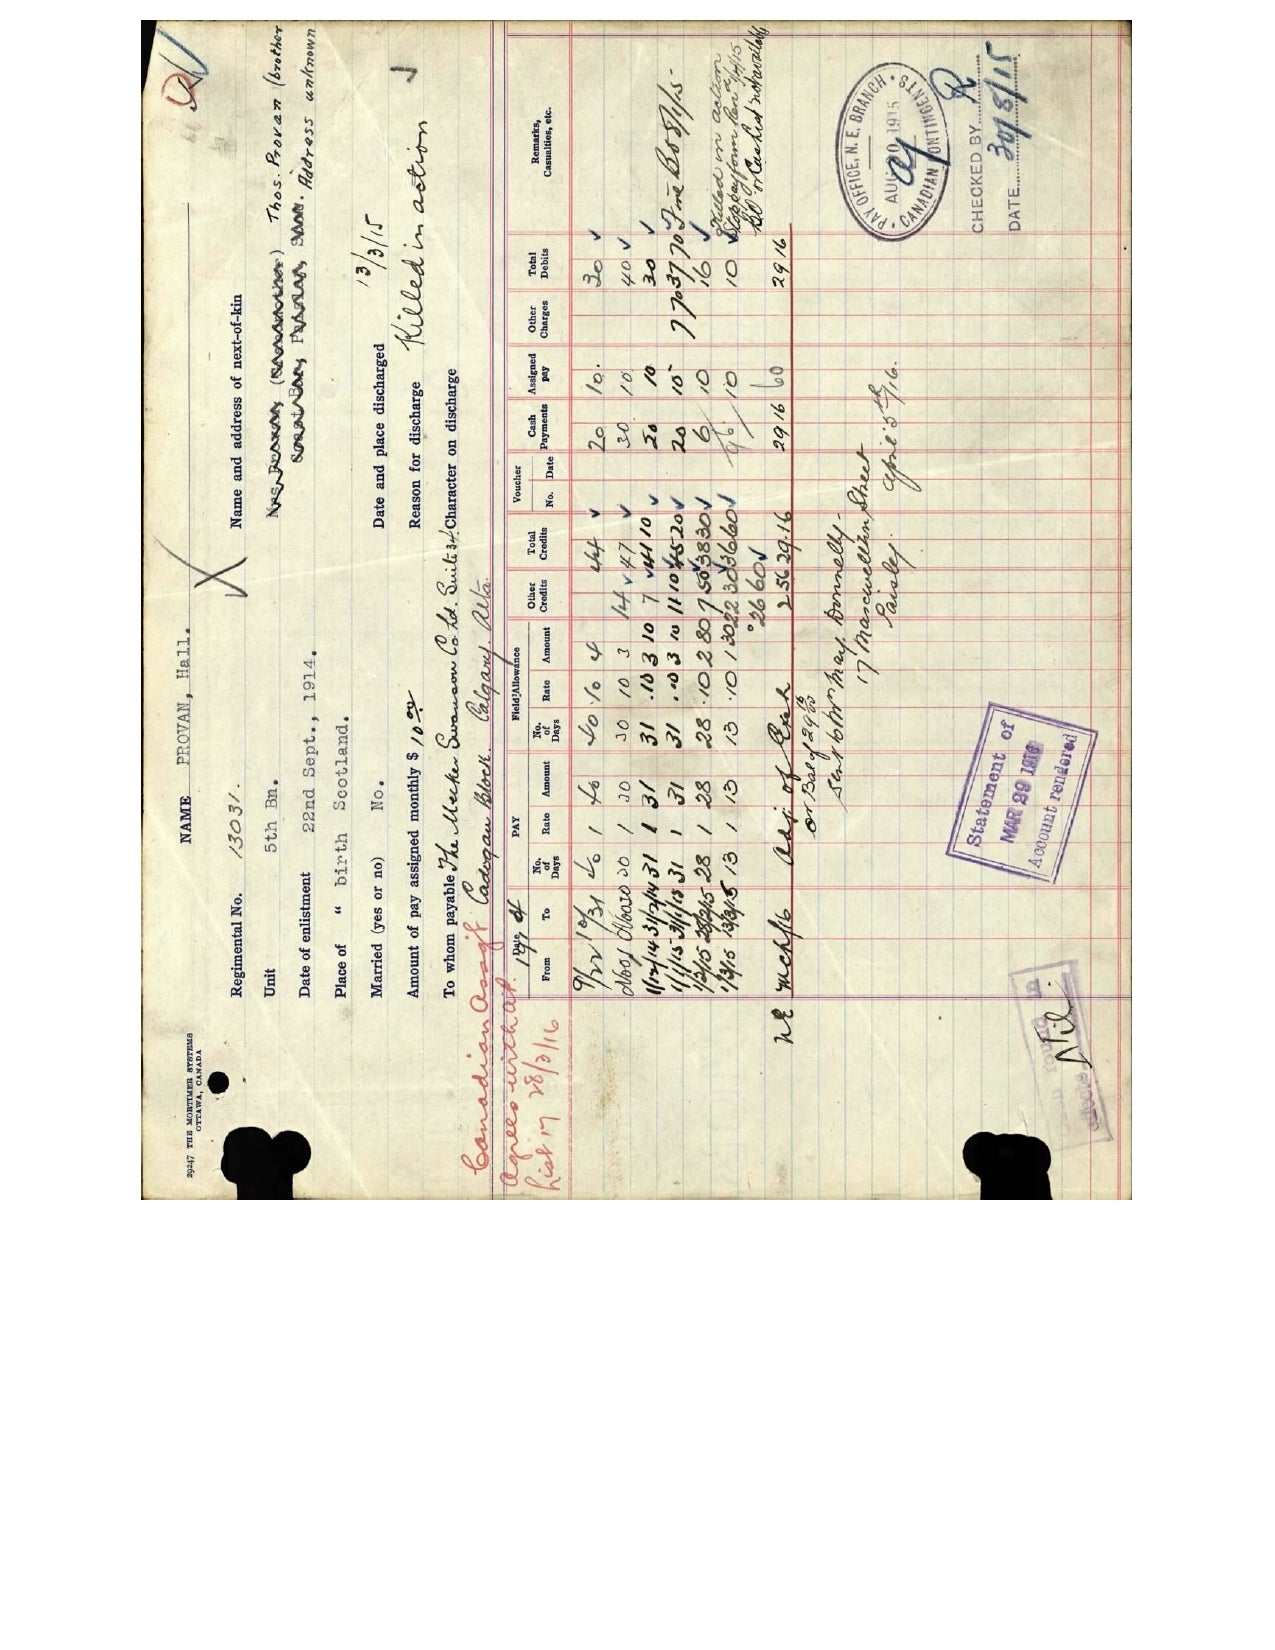 29247 THE MORTIMER SYSTEMS
OTTAWA, CANADA
NAME PROVAN, Hall.
Regimental No. 13031.
Unit 5th Bn.
Date of enlistment 22nd Sept., 1914.
Place of " birth Scotland.
Married (yes or no) No.
Amount of pay assigned monthly $ 10 00
To whom payable The Meeker Swanson Co Ld. Suite 34
Cadogan Block. Calgary. Alta.
Name and address of next-of-kin
Thos. Provan (brother
Address unknown
Date and place discharged 13/3/15
Reason for discharge Killed in action
Character on discharge
Canadian Assig't
agrees with a/c
List 17 28/3/16
Date PAY Field Allowance Other Credits Total Credits Voucher Cash Payments Assigned pay Other Charges Total Debits Remarks, Casualties, etc.
From To No. of Days Rate Amount No. of Days Rate Amount No. Date
9/22 10/31 40 1 40 40 .10 4 44 20 10. 30
30 1 30 30 10 3 14 47 30. 10. 40
1/12/14 31/12/14 31 1 31 31 .10 3 10 7 41 10 20 10 30
1/1/15 31/1/15 31 1 31 31 .10 3 10 11 10 45 20 20 10 7 70 37 70 Fine
1/2/15 28/2/15 28 1 28 28 .10 2 80 7 50 38 30 6 10 16
1/3/15 13/3/15 13 1 13 13 .10 1 30 22 30 36 60 10 10
Killed in action
26 60
N.E. Mch/16 Adj of Exch 2 56 29.16 29 16 60 29 16
or Bal of 29 16
Sent to Mrs May. Donnelly -
17 Maxwellton Street
Paisley. April 5th/16.
PAY OFFICE, N. E. BRANCH
AUG 30 1915
CANADIAN CONTINGENTS
CHECKED BY R
DATE 30/8/15
Statement of
MAR 29 1916
Account rendered
Nil.